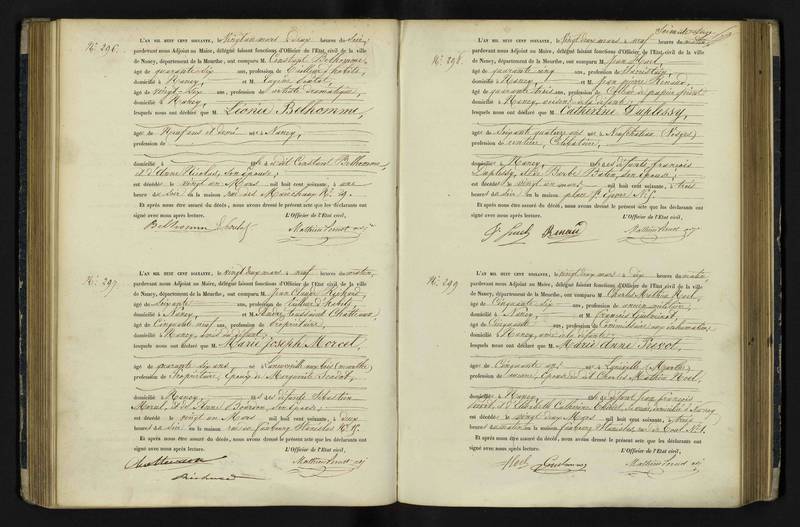 N° 296.
L'AN MIL HUIT CENT SOIXANTE, le vingt un mars à deux heures du soir,
pardevant nous Adjoint au Maire, délégué faisant fonctions d'Officier de l'Etat civil de la ville
de Nancy, département de la Meurthe, ont comparu M. Constant Belhomme,
âgé de quarante six ans, profession de tailleur d'habits,
domicilié à Nancy, et M. Eugène
âgé de vingt six ans, profession de artiste dramatique,
domicilié à Nancy,
lesquels nous ont déclaré que M. Léonie Belhomme,
âgée de neuf ans et demi née à Nancy,
profession de
domicilié à fille dudit Constant Belhomme,
et d'Anne Nicolas, son épouse;
est décédée le vingt un Mars mil huit cent soixante, à une
heure du soir en la maison rue des Maréchaux N° 19.
Et après nous être assuré du décès, nous avons dressé le présent acte que les déclarants ont
signé avec nous après lecture. L'Officier de l'Etat civil,
Belhomme
N° 297.
L'AN MIL HUIT CENT SOIXANTE, le vingt deux mars à neuf heures du matin,
pardevant nous Adjoint au Maire, délégué faisant fonctions d'Officier de l'Etat civil de la ville
de Nancy, département de la Meurthe, ont comparu M. Jean Claude Richard,
âgé de soixante ans, profession de tailleur d'habits,
domicilié à Nancy, et M. Toussaint
âgé de cinquante neuf ans, profession de propriétaire,
domicilié à Nancy,
lesquels nous ont déclaré que M. Marie Joseph Morcel,
âgé de quarante six ans, né à Laneuveville aux bois (Meurthe)
profession de Propriétaire, époux de Marguerite
domicilié à Nancy, fils des défunts Sébastien
Morcel, et de Anne son épouse;
est décédé le vingt un Mars mil huit cent soixante, à deux
heures du soir en la maison rue du faubourg Stanislas N°
Et après nous être assuré du décès, nous avons dressé le présent acte que les déclarants ont
signé avec nous après lecture. L'Officier de l'Etat civil,
Richard
N° 298.
L'AN MIL HUIT CENT SOIXANTE, le vingt deux mars à neuf heures du matin,
pardevant nous Adjoint au Maire, délégué faisant fonctions d'Officier de l'Etat civil de la ville
de Nancy, département de la Meurthe, ont comparu M. Jean
âgé de quarante cinq ans, profession de
domicilié à Nancy, et M. Jean Pierre Renaud,
âgé de quarante trois ans, profession de papier peint
domicilié à Nancy, voisins de la défunte,
lesquels nous ont déclaré que M. Catherine Duplessy,
âgée de soixante quatorze ans née à Neufchâteau (Vosges)
profession de rentière, célibataire,
domiciliée à Nancy, fille des défunts françois
Duplessy, et de Barbe son épouse;
est décédée le vingt un mars mil huit cent soixante, à trois
heures du soir en la maison place St. Epvre N° 5.
Et après nous être assuré du décès, nous avons dressé le présent acte que les déclarants ont
signé avec nous après lecture. L'Officier de l'Etat civil,
Renaud
N° 299
L'AN MIL HUIT CENT SOIXANTE, le vingt deux mars à dix heures du matin,
pardevant nous Adjoint au Maire, délégué faisant fonctions d'Officier de l'Etat civil de la ville
de Nancy, département de la Meurthe, ont comparu M. Charles Mathieu Noel,
âgé de cinquante six ans, profession de ancien militaire,
domicilié à Nancy, et M. françois
âgé de cinquante ans, profession de Commissaire aux inhumations
domicilié à Nancy, ami de la défunte,
lesquels nous ont déclaré que M. Marie Anne
âgée de cinquante ans née à Lunéville (Meurthe)
profession de épouse dudit Charles Mathieu Noel,
domiciliée à Nancy, fille de défunt Jean françois
et d'Elisabeth Catherine
est décédée le vingt deux Mars mil huit cent soixante, à trois
heures du matin en la maison faubourg Stanislas, rue de Toul N° 1.
Et après nous être assuré du décès, nous avons dressé le présent acte que les déclarants ont
signé avec nous après lecture. L'Officier de l'Etat civil,
Noel